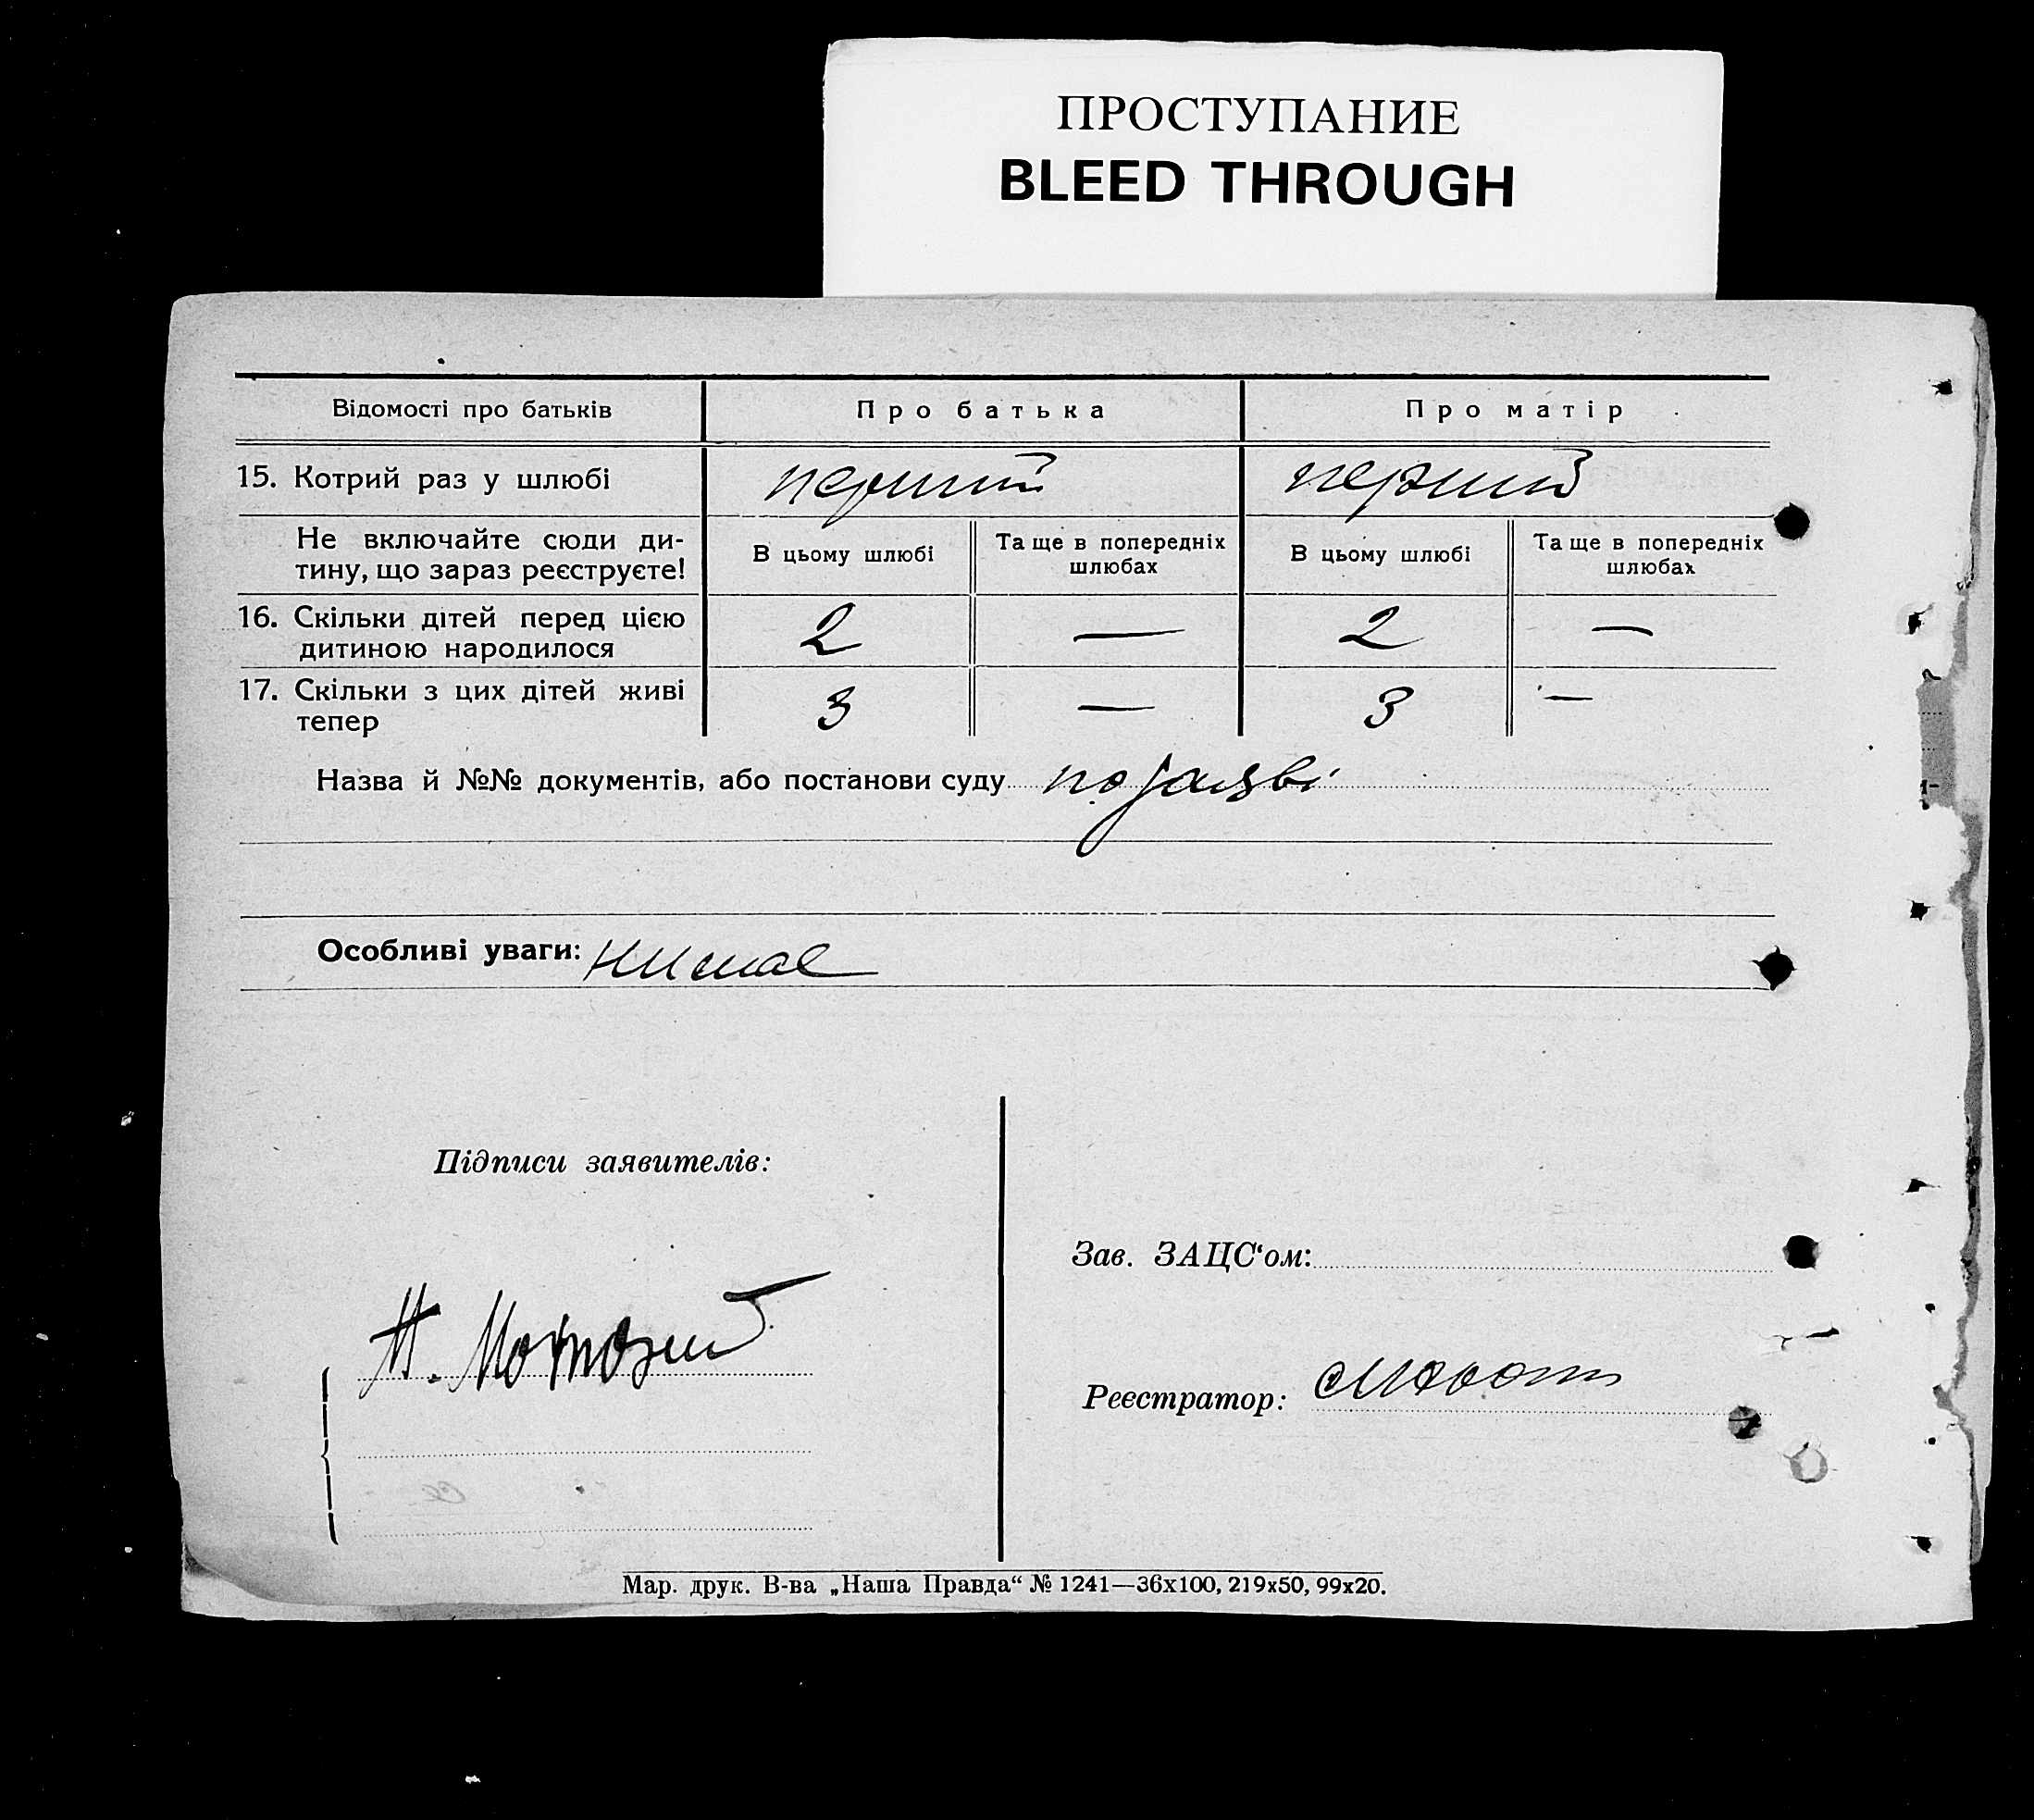 ПРОСТУПАНИЕ
BLEED THROUGH
Відомості про батьків
Про батька
Про матір
15. Котрий раз у шлюбі
перший
перший
Не включайте сюди ди-
тину, що зараз реєструєте!
В цьому шлюбі
Та ще в попередніх
шлюбах
В цьому шлюбі
Та ще в попередніх
шлюбах
16. Скільки дітей перед цією
дитиною народилося
2
—
2
—
17. Скільки з цих дітей живі
тепер
3
—
3
—
Назва й №№ документів, або постанови суду по заяві
Особливі уваги: нимае
Підписи заявителів:
Зав. ЗАЦС‘ом:
Реєстратор:
Мар. друк. В-ва „Наша Правда“ № 1241—36х100, 219х50, 99х20.